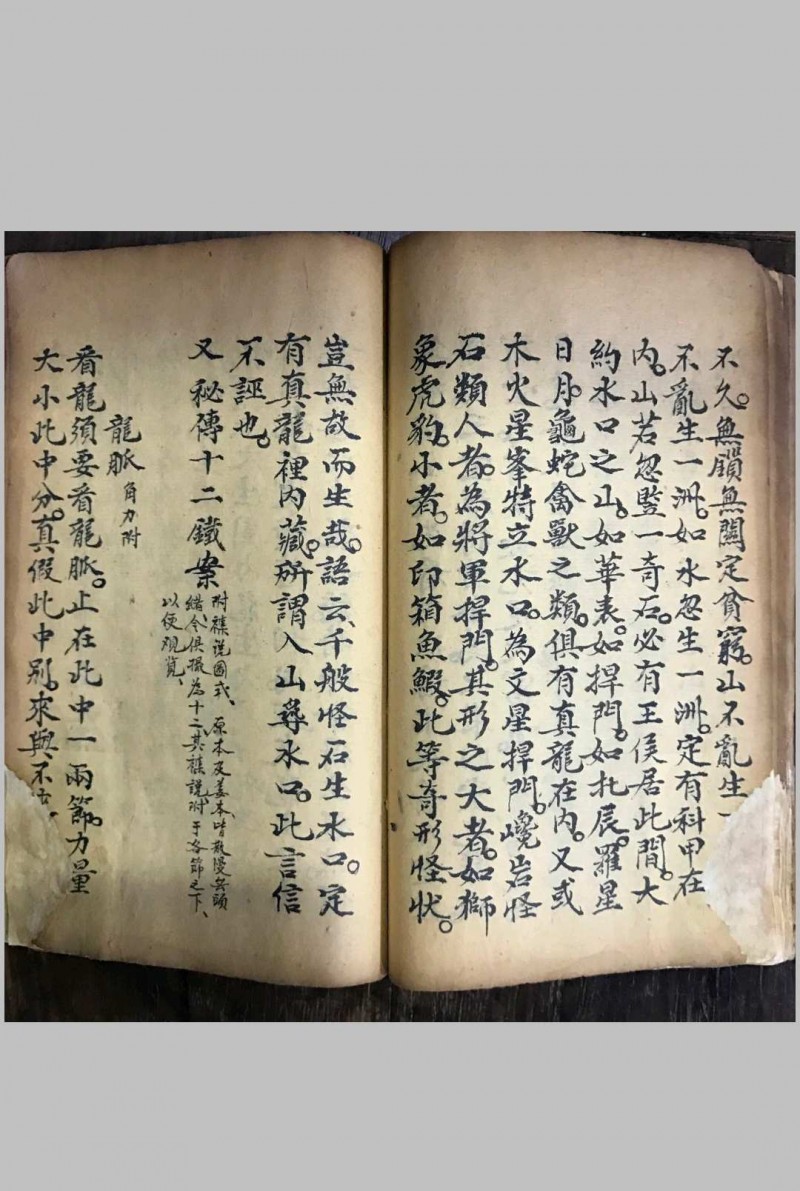 不久。無鎖無關定貧窮。山不亂生
不亂生一洲。如水忽生一洲。定有科甲在
內。山若忽豎一奇石。必有王侯居此間。大
約水口之山。如華表。如捍門。如北辰。羅星
日月。龜蛇禽獸之類。俱有真龍在內。又或
木火星峯特立水口。為文星捍門。巉岩怪
石類人者。為將軍捍門。其形之大者。如獅
象虎豹。小者。如印箱魚鰕。此等奇形怪狀。
豈無故而生哉。語云、千般怪石生水口。定
有真龍裡內藏。所謂入山尋水口。此言信
不誣也。
又秘傳十二鐵案
附襍說圖式、原本及姜本、皆散漫無頭
緒、今俱撮為十二、其襍說、附于各節之下、
以便观览、
龍脈 角力附
看龍須要看龍脈。止在此中一兩節。力量
大小此中分。真假此中別。來與不